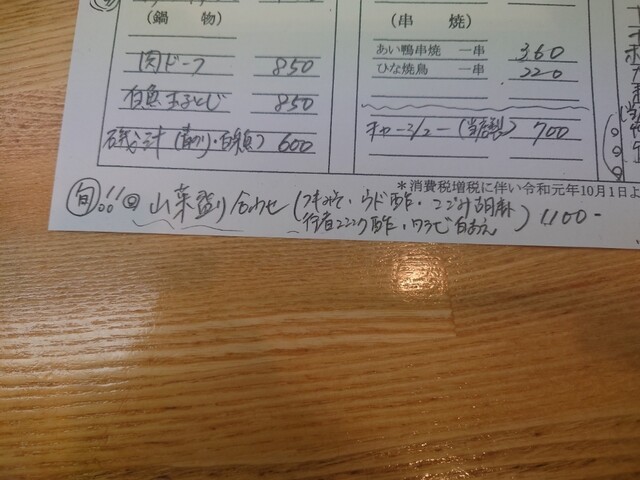 (鍋 物)
肉ドーフ 850
白魚玉子とじ 850
600
(串 焼)
あい鴨串焼 一串 360
ひな焼鳥 一串 220
チャーシュー(当店製) 700
*消費税増税に伴い令和元年10月1日よ
旬!! 山菜盛り合わせ(フキみそ・ウド酢・こごみ胡麻
行者ニンニク酢・ワラビ白あえ) 1,100-